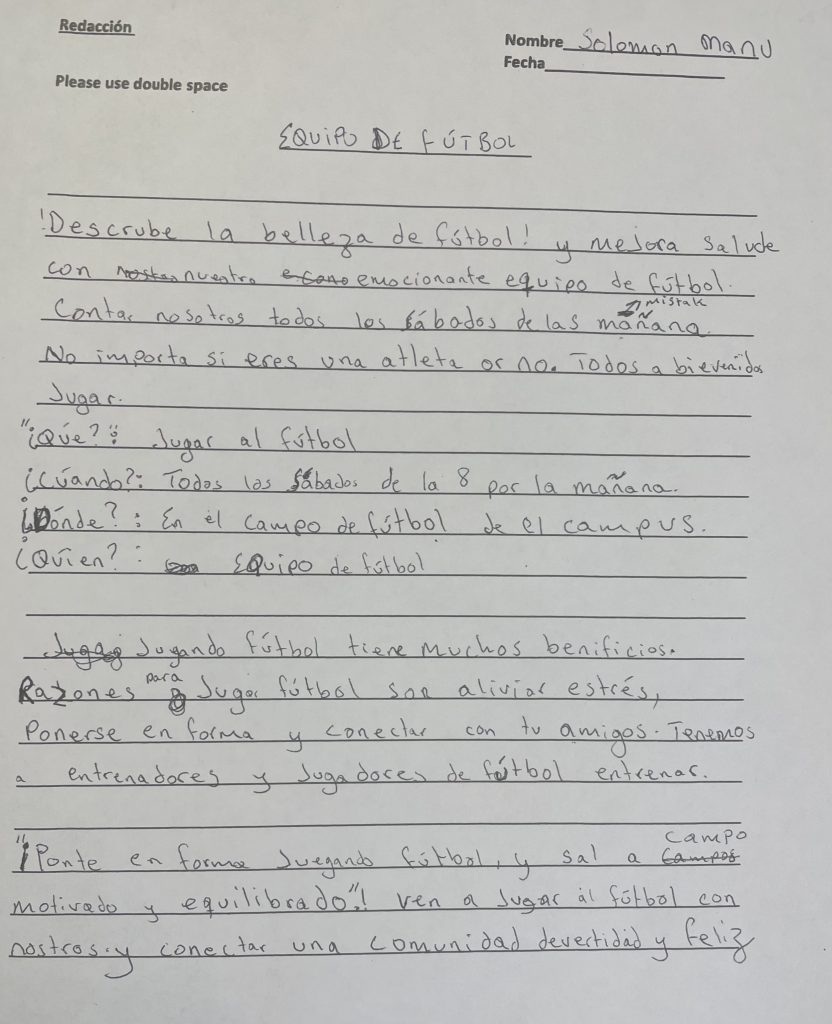 Redacción
Nombre Solomon Manu
Fecha
Please use double space
EQUIPO DE FÚTBOL
¡Descrube la belleza de fútbol! y mejora salude
con nuentro emocionante equipo de fútbol.
mistak
Contar nosotros todos los sábados de las mañana.
No importa si eres una atleta or no. Todos a bievenidos
Jugar.
"¿Qúe?": Jugar al fútbol
¿Cúando?: Todos los sábados de la 8 por la mañana.
¿Dónde?: En el campo de fútbol de el campus.
¿Quíen?: Equipo de fútbol
Jugando fútbol tiene muchos benificios.
Razones para Jugar fútbol son aliviar estrés,
Ponerse en forma y conectar con tu amigos. Tenemos
a entrenadores y Jugadores de fútbol entrenar.
"¡Ponte en forma Juegando fútbol, y sal a campo
motivado y equilibrado"! Ven a Jugar al fútbol con
nostros. y conectar una comunidad devertidad y feliz